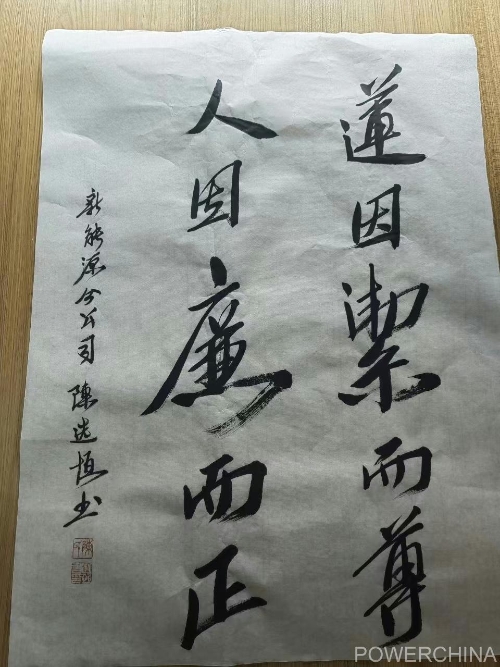 蓮因潔而尊
人因廉而正
新能源分公司 陳选恒书
POWERCHINA